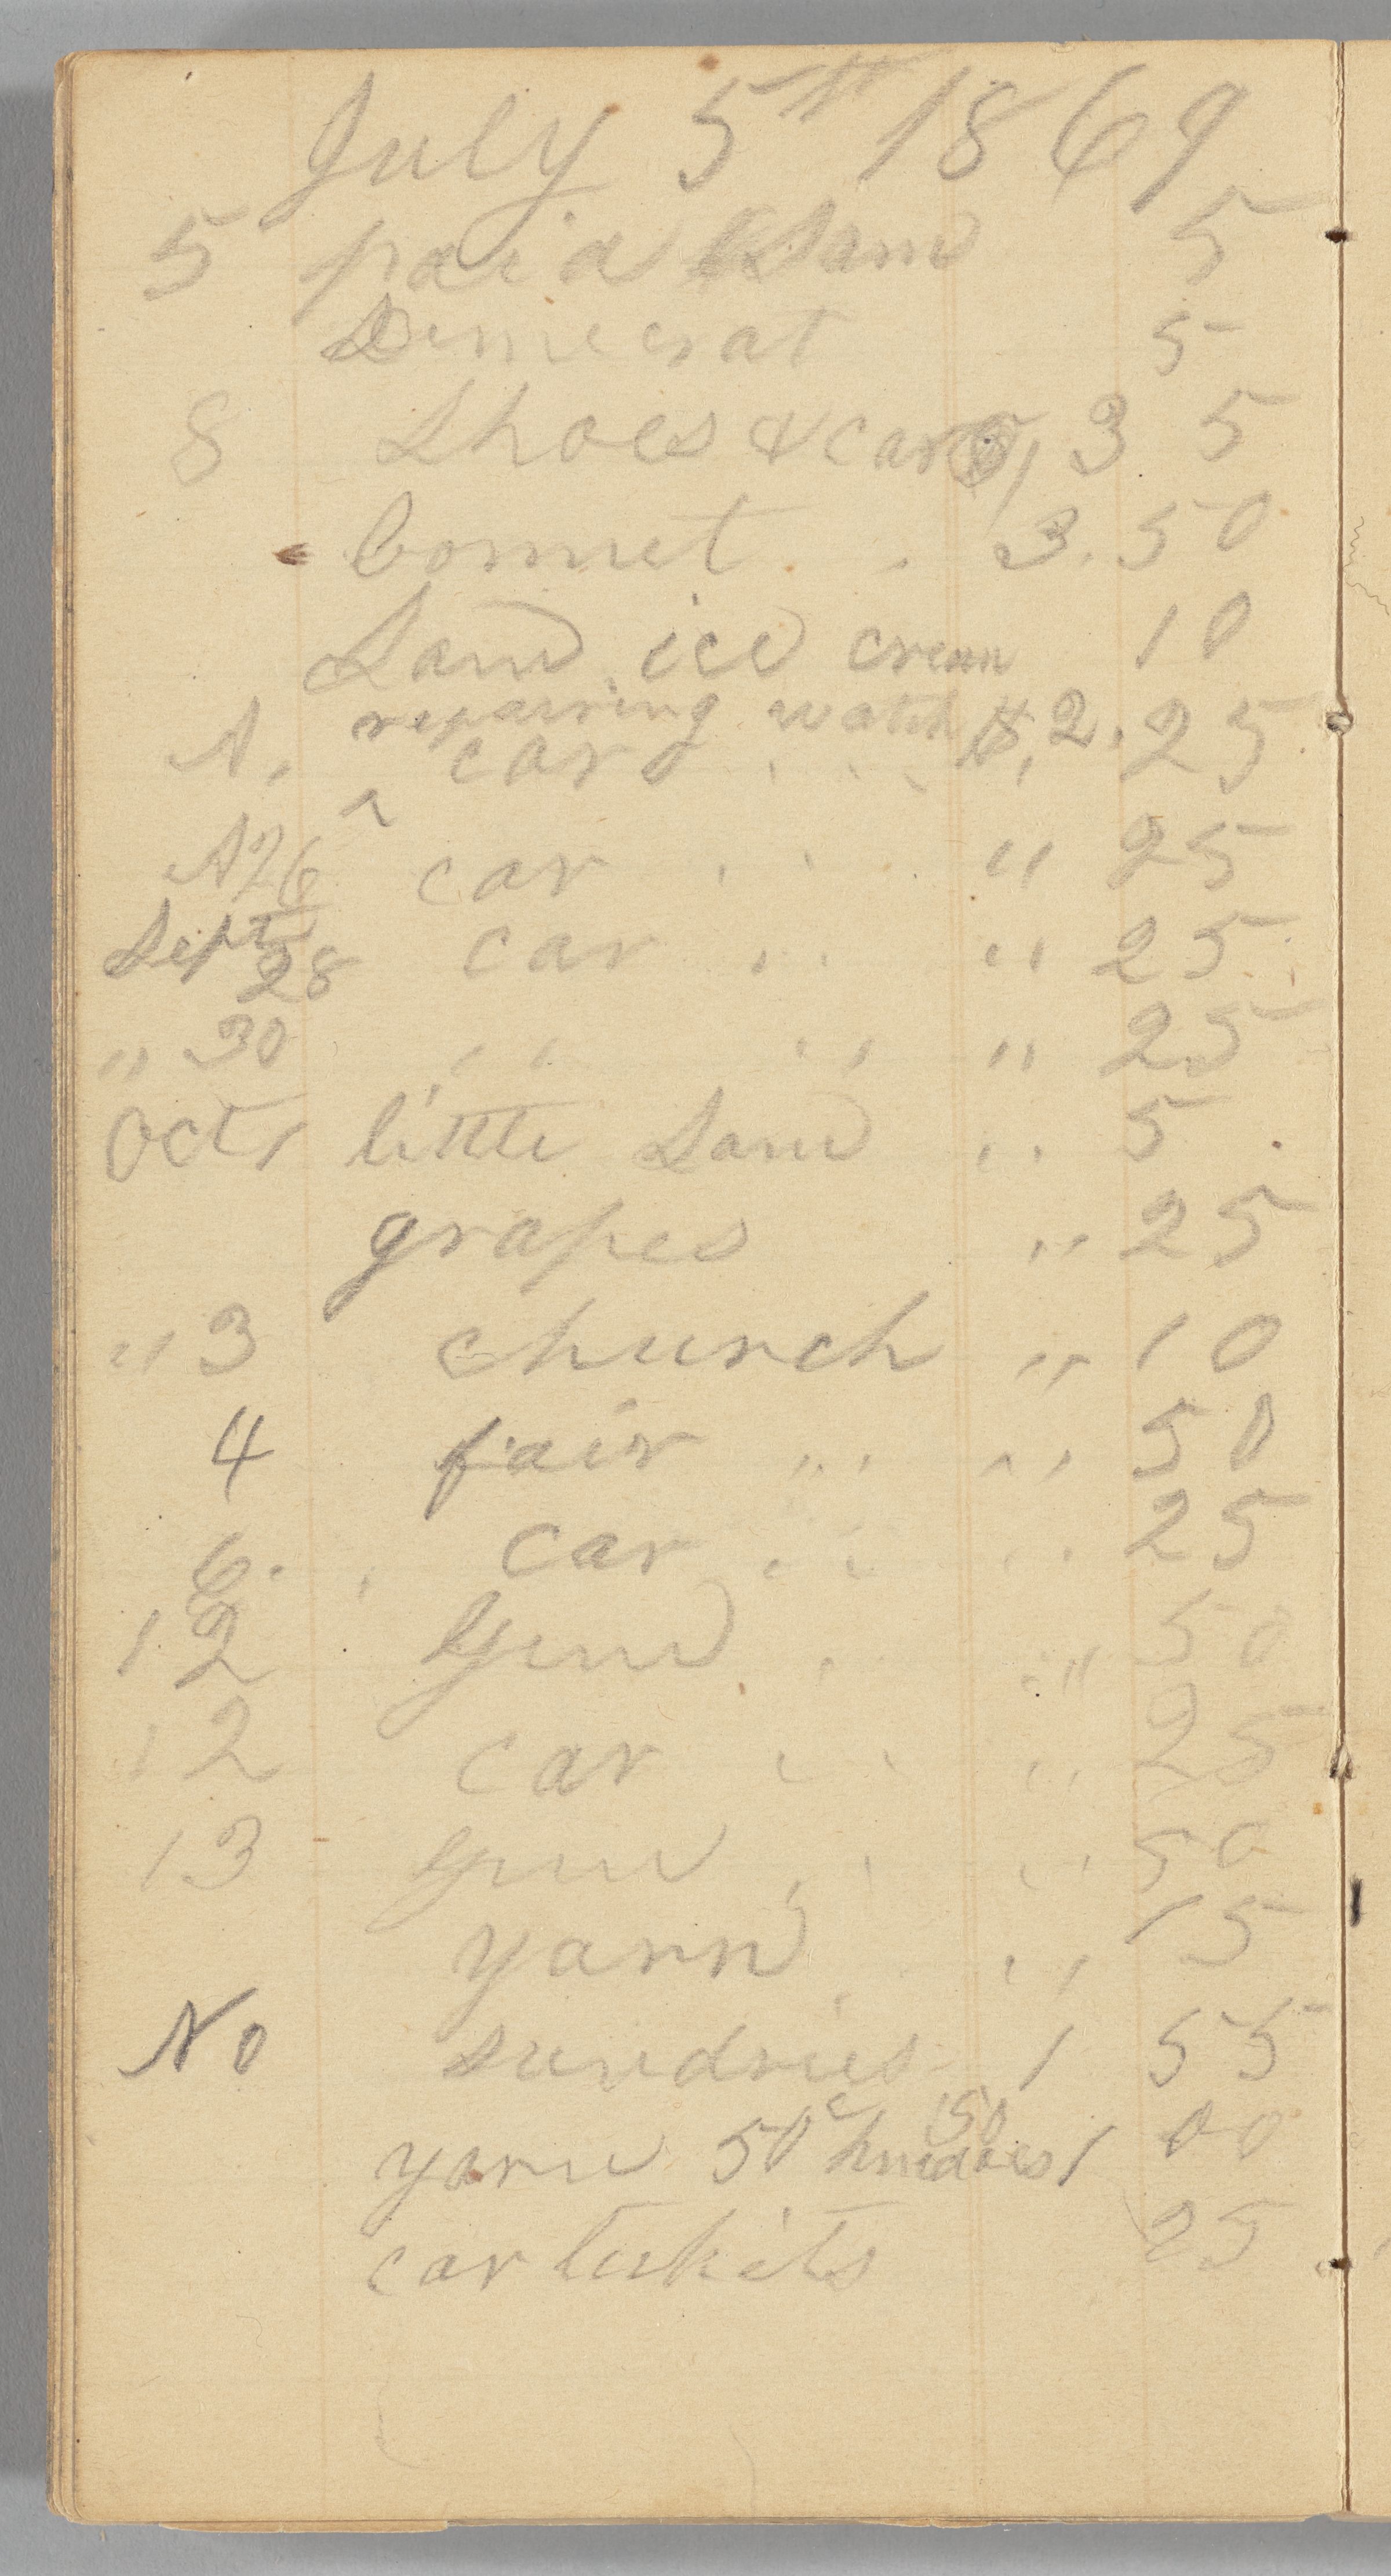 July 5th 1869
5 paid Sam 5
Democrat 5
8 Shoes & car 3 5
bonnet . 3.50
Sam ice cream 10
repairing watch $2.
A. car . . . 25
A 26 car . . " 25
Sept 28 car . . " 25
" 30 " " " " 25
Oct 1 little Sam . . 5
grapes " 25
" 3 church " 10
4 fair " " " 50
6. car . . . . 25
12 . " 50
12 car . . " 25
13 . " 50
yarn . . 15
No sundries 1 55
50
yarn 50c 1 00
car tickits 25